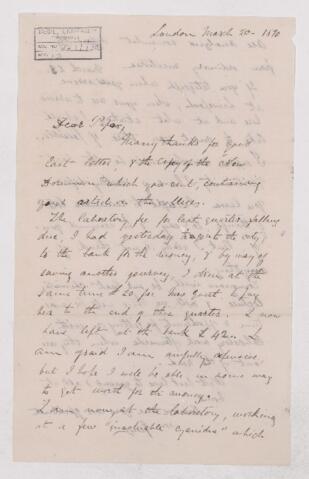 London March 20 - 1890
Dear Papa,
Many thanks for your
last letter, & the copy of the New
Dominion which you sent, containing
your article on the
The laboratory fee for last quarter falling
due, I had yesterday to go to the city
to the bank for the money, & by way of
saving another journey, I drew at the
same time £20 for Miss to pay
her to the end of this quarter. I now
have left at the bank £42. I
am afraid I am awfully expensive
but I hope I will be able in some way
to get worth for the money.
I am now, at the laboratory, working
at a few "insoluble cyanides" which